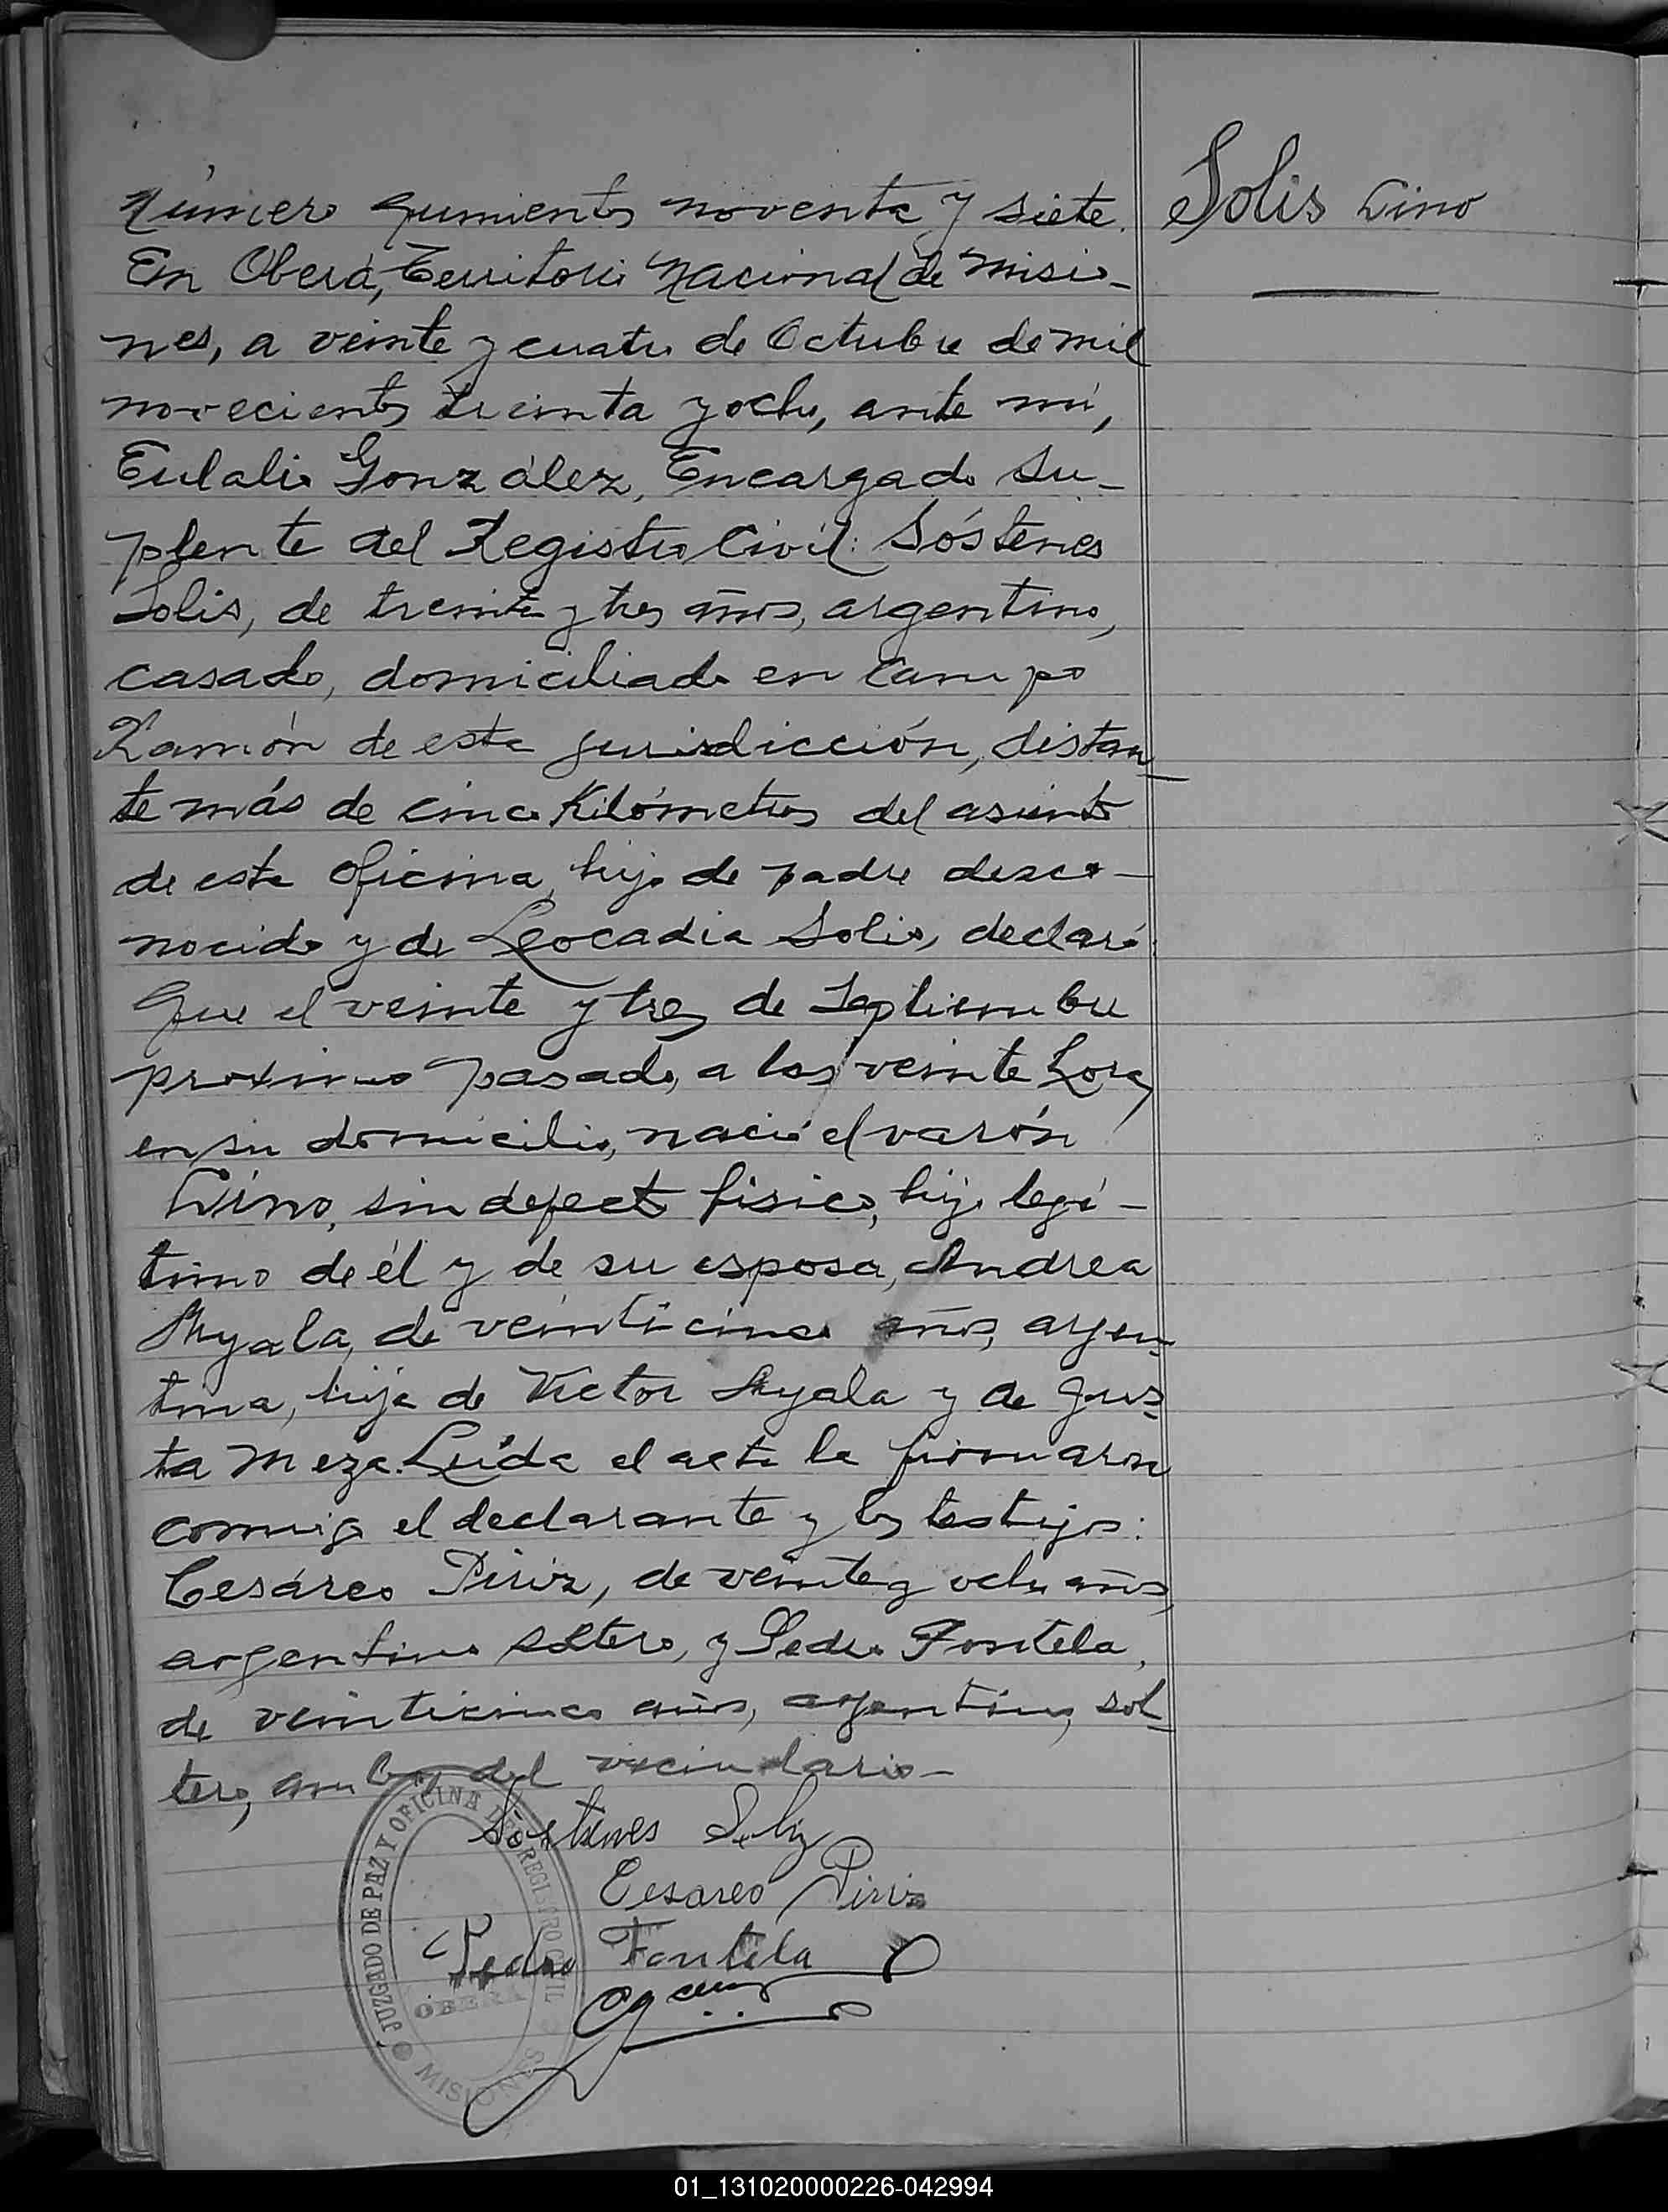 Número quinientos noventa y siete.
Solis Lino
En Oberá, Territorio Nacional de Misio-
nes, a veinte y cuatro de Octubre de mil
novecientos treinta y ocho, ante mí,
Eulalio González, Encargado Su-
plente del Registro Civil: Sóstenes
Solis, de treinta y tres años, argentino,
casado, domiciliado en Campo
Ramón de esta jurisdicción, distan-
te más de cinco Kilómetros del asiento
de esta Oficina, hijo de padre desco-
nocido y de Leocadia Solis, declaró:
Que el veinte y tres de Septiembre
proximo pasado, a las veinte horas
en su domicilio, nació el varón
Lino, sin defecto fisico, hijo legí-
timo de él y de su esposa, Andrea
Ayala, de veinticinco años, argen-
tina, hija de Victor Ayala y de Jus-
ta Meza. Leída el acta la firmaron
conmigo el declarante y los testigos:
Cesáreo Piriz, de veinte y ocho años,
argentino soltero, y Pedro Fontela,
de veinticinco años, argentino, sol-
tero, ambos del vecindario-
Sóstenes Soliz
Cesareo Piriz
Pedro Fontela
JUZGADO DE PAZ Y OFICINA DE REGISTRO CIVIL
OBERÁ
MISIONES
01_131020000226-042994